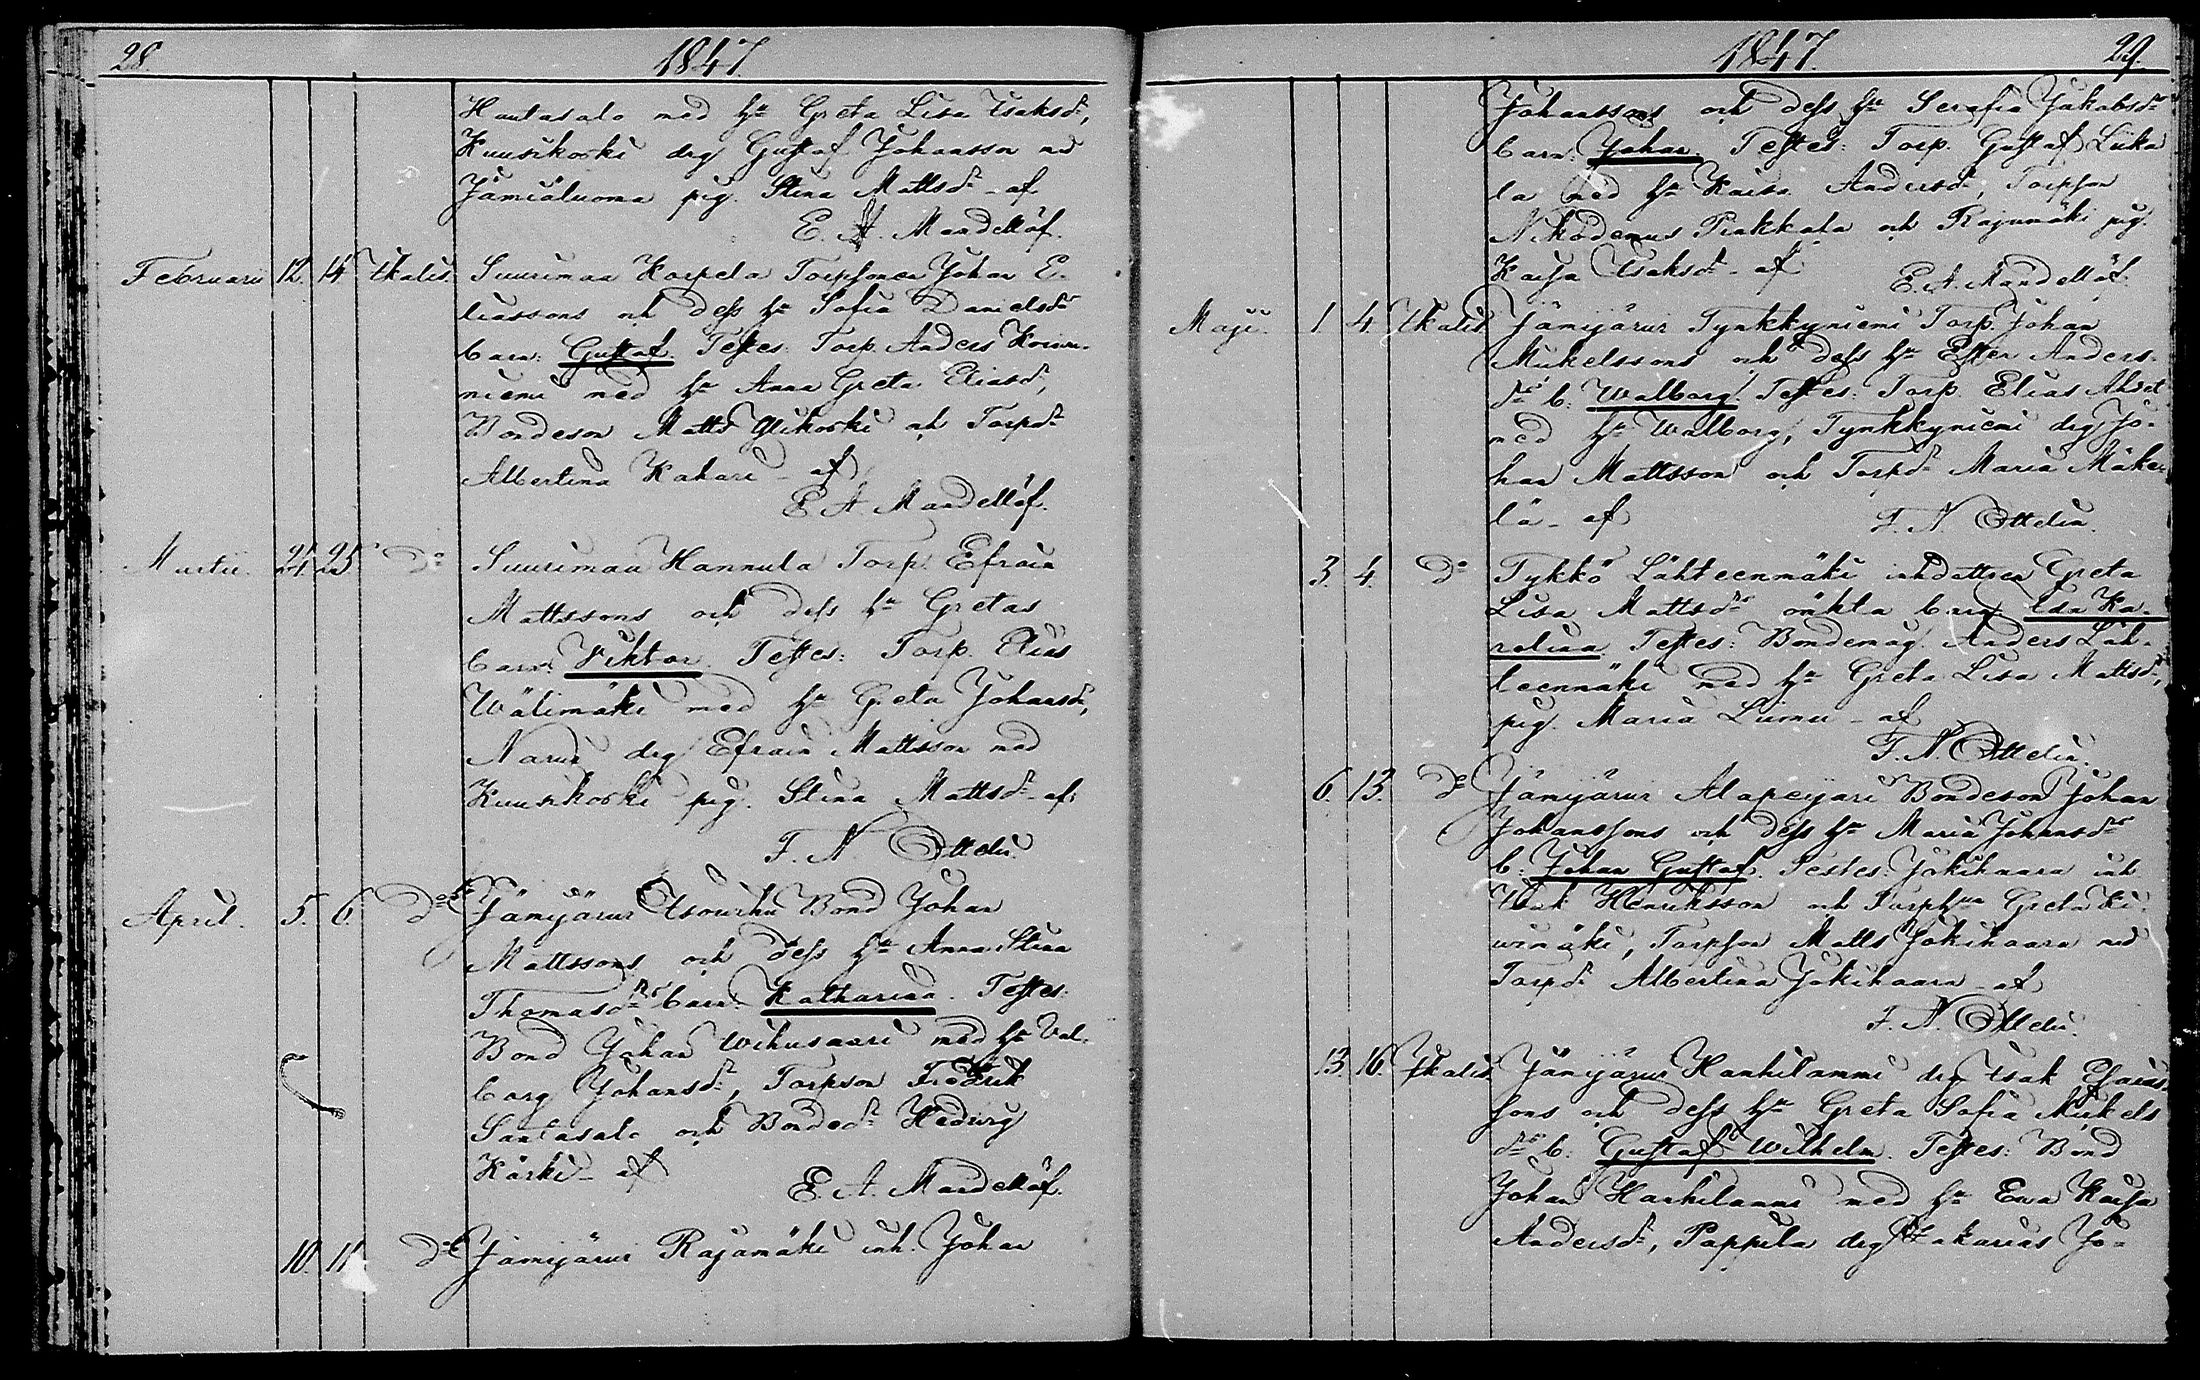 28.
1847.
Hantasalo med hu Greta Lisa Isaksdr,
Kuusikoski drg Gustaf Johansson md
Jämiäluoma pig. Stina Mattsdr - af
E. A. Mandellöf.
Februarii 12. 14. Ikalis. Suurimaa Korpela Torpsonen Johan E-
liassons och dess hu Sofia Danielsdrs
barn: Gustaf. Testes: Torp. Anders Koivu-
niemi med hu Anna Greta Eliasdr,
Bondeson Matts Ylikoski och Torpdr
Albertina Kahari - af
E. A. Mandellöf.
Martii. 24. 25. Do Suurimaa Hannula Torp. Efraim
Mattssons och dess hu Gretas
barn: Viktor. Testes: Torp. Elias
Wälimäki med hu Greta Johansdr,
Narvi drg Efraim Mattsson med
Kuusikoski pig. Stina Mattsdr - af
F. N. Ottelin.
April. 5. 6. Do Jämijärvi Isovihu Bond Johan
Mattssons och dess hu Anna Stina
Thomasdrs barn: Katharina. Testes:
Bond Johan Wihusaari med hu Val-
borg Johansdr, Torpson Fredrik
Santasalo och Bondedr Hedvig
Kärki - af
E. A. Mandellöf.
10. 11. Do Jämijärvi Rajamäki inh. Johan
1847. 29.
Johanssons och dess hu Serafia Jakobsdrs
barn: Johan. Testes: Torp. Gustaf Luka
la med hu Kaisa Andersdr, Torpson
Nikodemus Piakkala och Rajamäki pig.
Kaisa Isaksdr - af
E. A. Mandellöf.
Maji. 1. 4. Ikalis. Jämijärvi Tynkkyniemi Torp. Johan
Mikelssons och dess hu Ester Anders-
drs b: Walborg. Testes: Torp. Elias
med hu Walborg, Tynkkyniemi drg Jo-
han Mattsson och Torpdr Maria Mäke-
lä - af
F. N. Ottelin.
3. 4. Do Tykkö Lähteenmäki inhdottren Greta
Lisa Mattsdrs oäkta barn Eda Ka-
rolina. Testes: Bondemåg. Anders Läh-
teenmäki med hu Greta Lisa Mattsdr,
pig. Maria Luomu - af
F. N. Ottelin.
6. 13. Do Jämijärvi Alapeijari Bondeson Johan
Johanssons och dess hu Maria Johansdrs
b: Johan Gustaf. Testes: Jokihaara inh
Isak Henriksson och Torphun Greta Ki-
wimäki, Torpson Matts Jokihaara med
Torpdr Albertina Jokihaara - af
F. N. Ottelin.
13. 16. Ikalis. Jämijärvi Hanhilammi drg Isak Esaias-
sons och dess hu Greta Sofia Mikels
drs b: Gustaf Wilhelm. Testes: Bond
Johan Hanhilammi med hu Ewa Kaisa
Andersdr, Pappila drg Zakarias Jo-